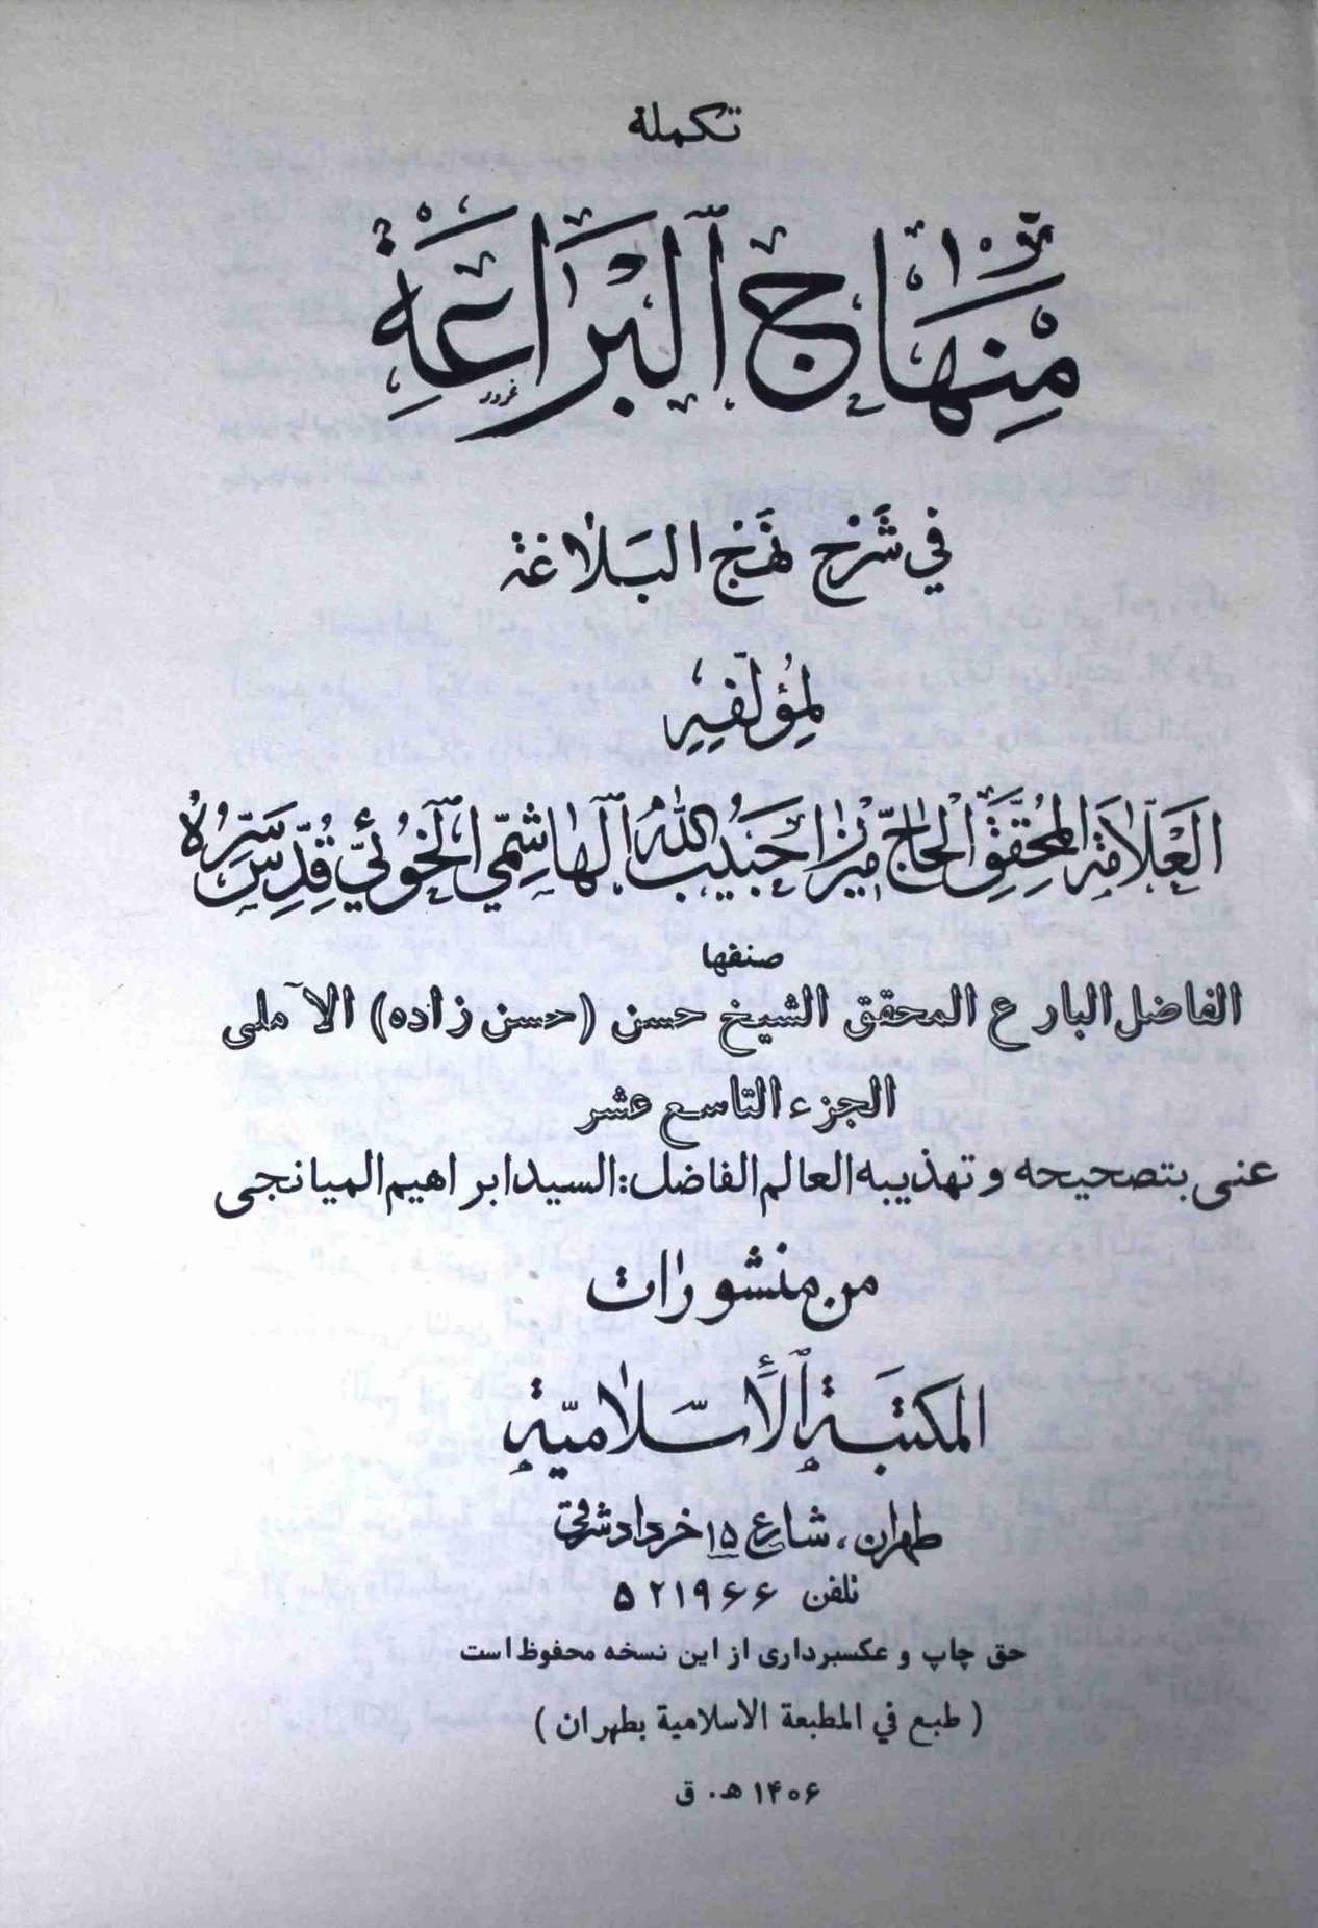 تكملة
مِنْهَاجُ الْبَرَاعَةِ
في شَرْح نَهْج البَلاغة
لِمُؤلّفِهِ
العَلّامَة المُحَقّق الحَاجّ ميرزا حَبيبُ اللهُ الهَاشِمّي الخُوئيّ قُدّسَ سِرّهُ
صنفها
الفاضل البارع المحقق الشيخ حسن (حسن زاده) الآملى
الجزء التاسع عشر
عنى بتصحيحه وتهذيبه العالم الفاضل: السيد ابراهيم الميانجى
من منشورات
المكتبَة الأسْلاميّة
طهران، شارع ۱۵ خرداد شرقی
تلفن ۵۲۱۹۶۶
حق چاپ و عكسبردارى از اين نسخه محفوظ است
( طبع في المطبعة الاسلامية بطهران )
۱۴۰۶ هـ. ق